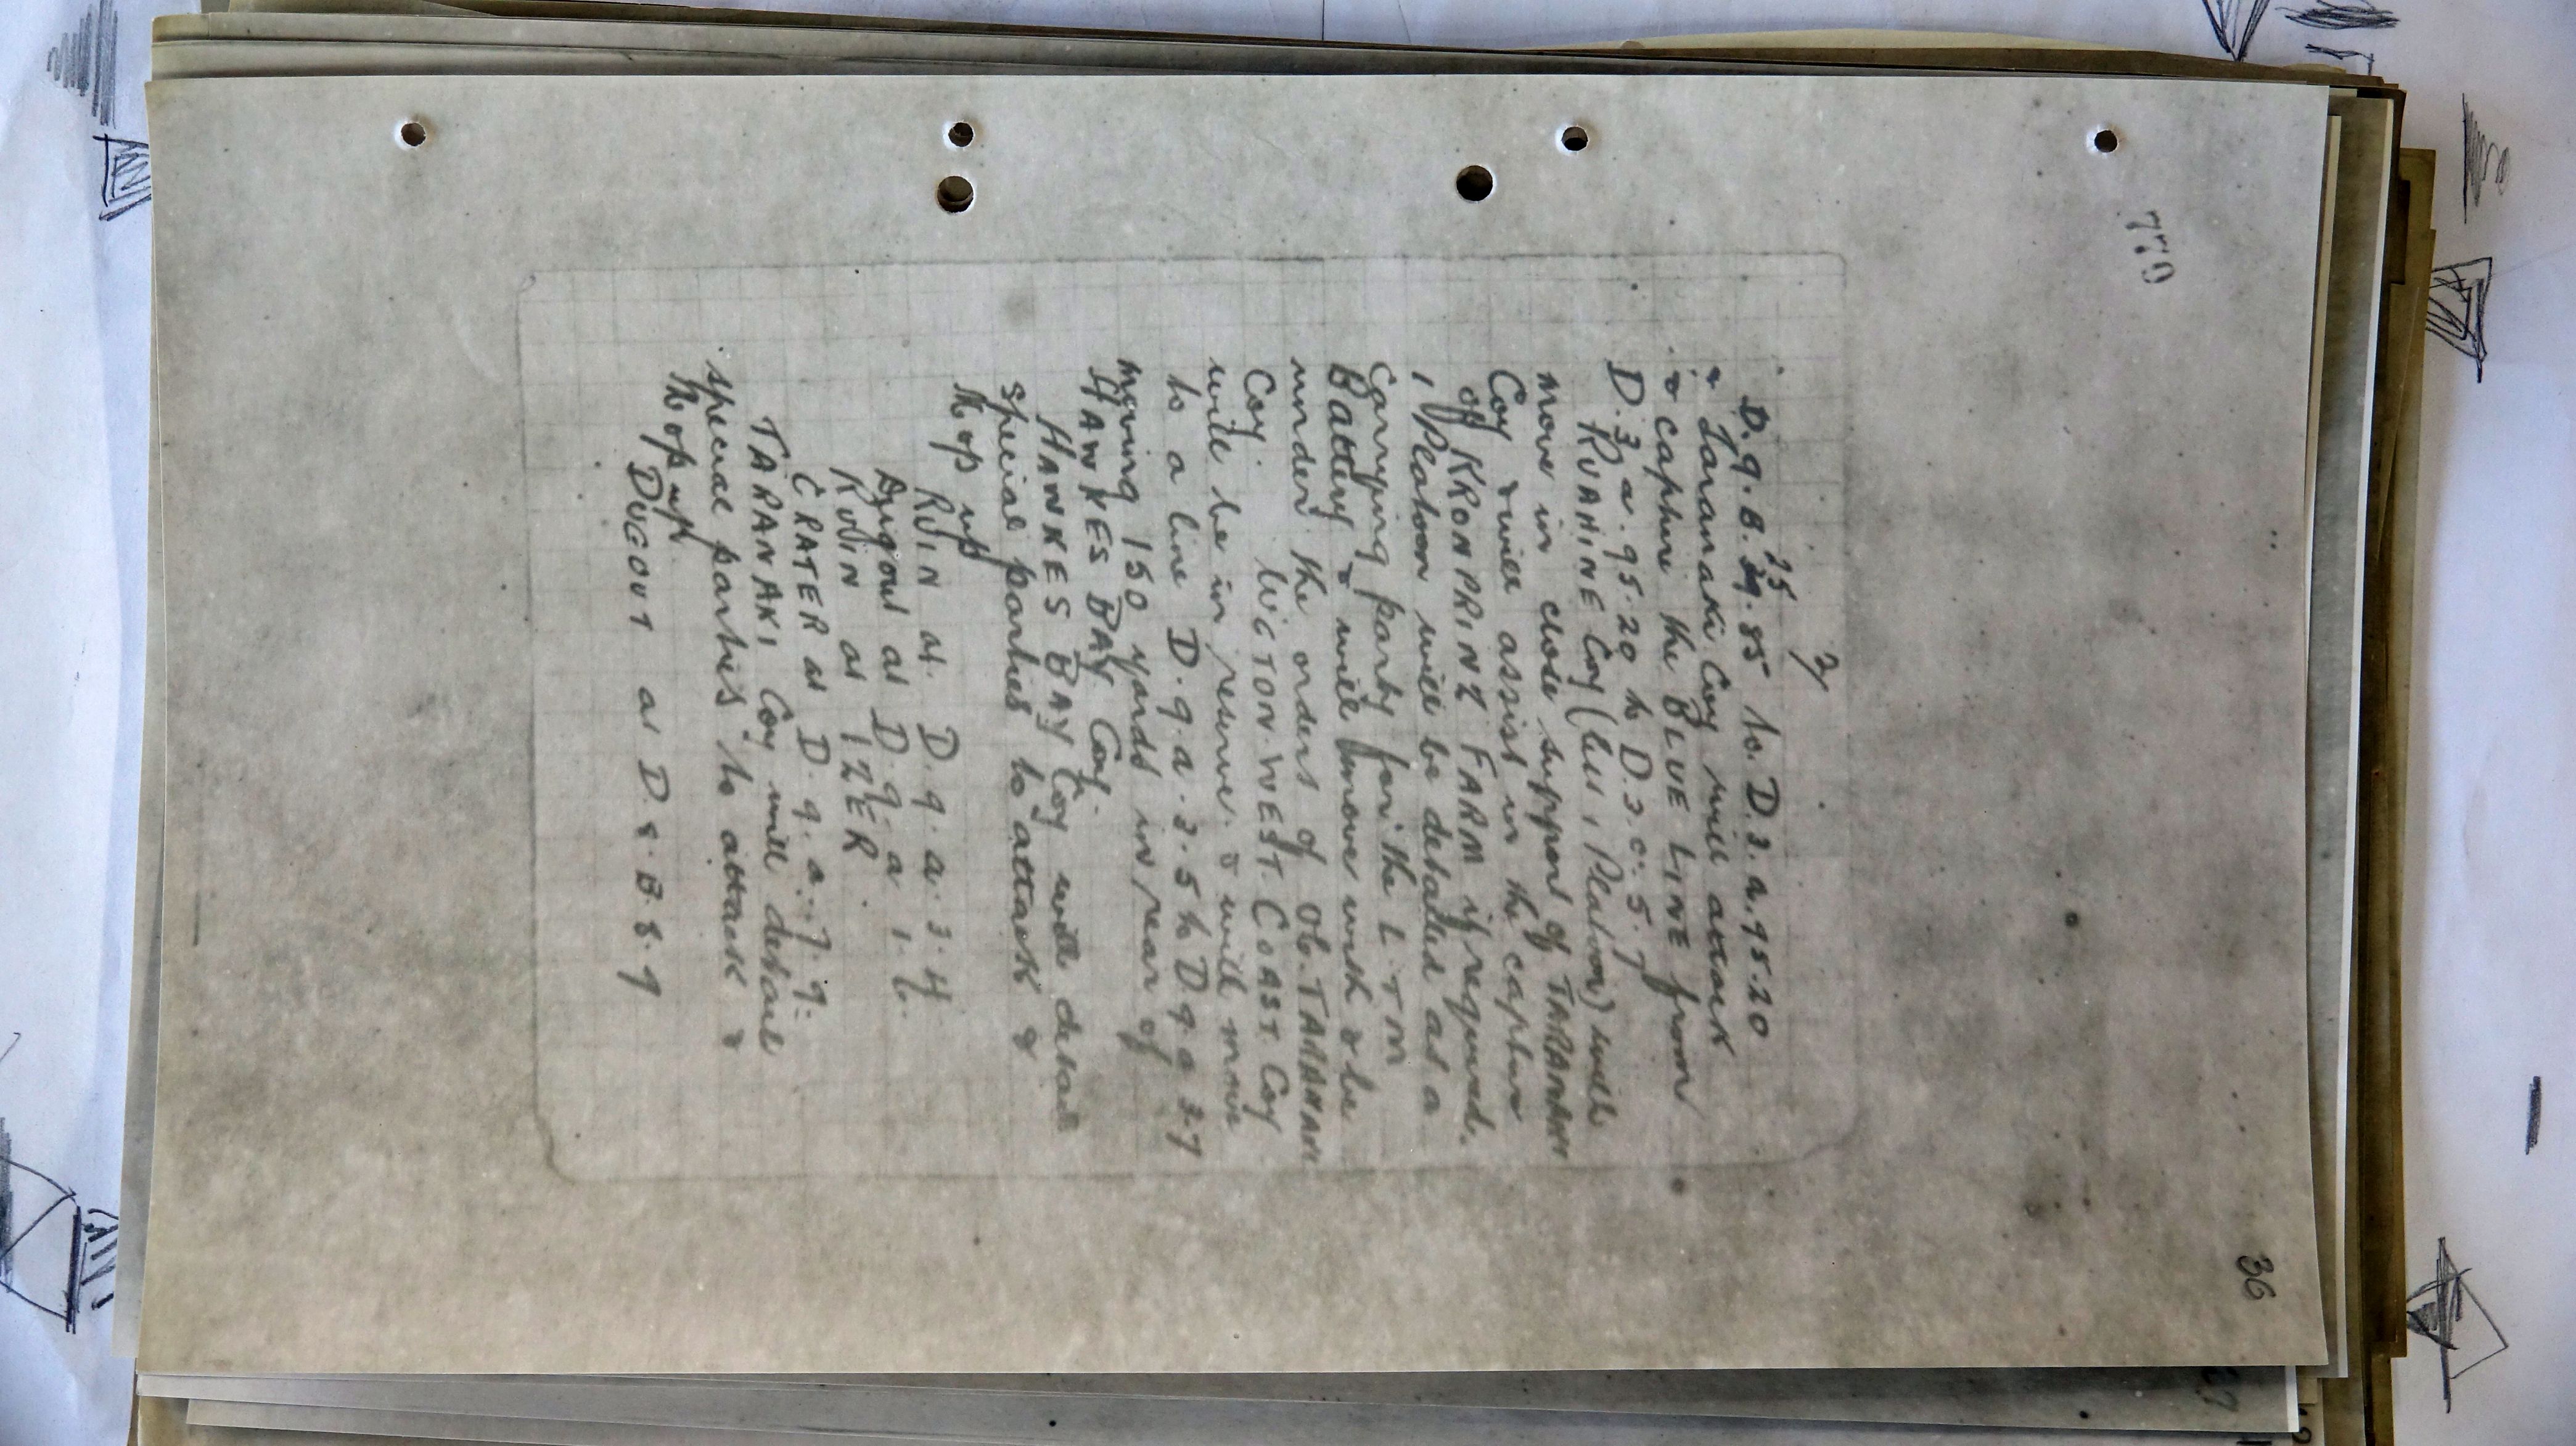 36
779
3/
D.9.B.25.85 to. D.3.a.95.20
Taranaki Coy will attack
& capture the BLUE LINE from
D.3.a.95.20 to D.3.c.5.7
RUAHINE Coy (less 1 Platoon) will
move in close support of TARANAKI
Coy & will assist in the capture
of KRONPRINZ FARM if required.
1 Platoon will be detailed as a
Carrying party for the L.T.M
Battery & will move with & be
under the orders of Ob. TARANAKI
Coy. WGTON WEST COAST Coy
will be in reserve & will move
to a line D.9.a.3.5 to D.9.a.3.7
moving 150 yards in rear of
HAWKES BAY Coy.
HAWKES BAY Coy will detail
special parties to attack &
mop up
RUIN at D.9.a.3.4
Dugout at D.9.a 1.6.
RUIN at IZER.
CRATER at D.9.a.7.9.
TARANAKI Coy will detail
special parties to attack &
mop up.
DUGOUT at D.8.B.8.9